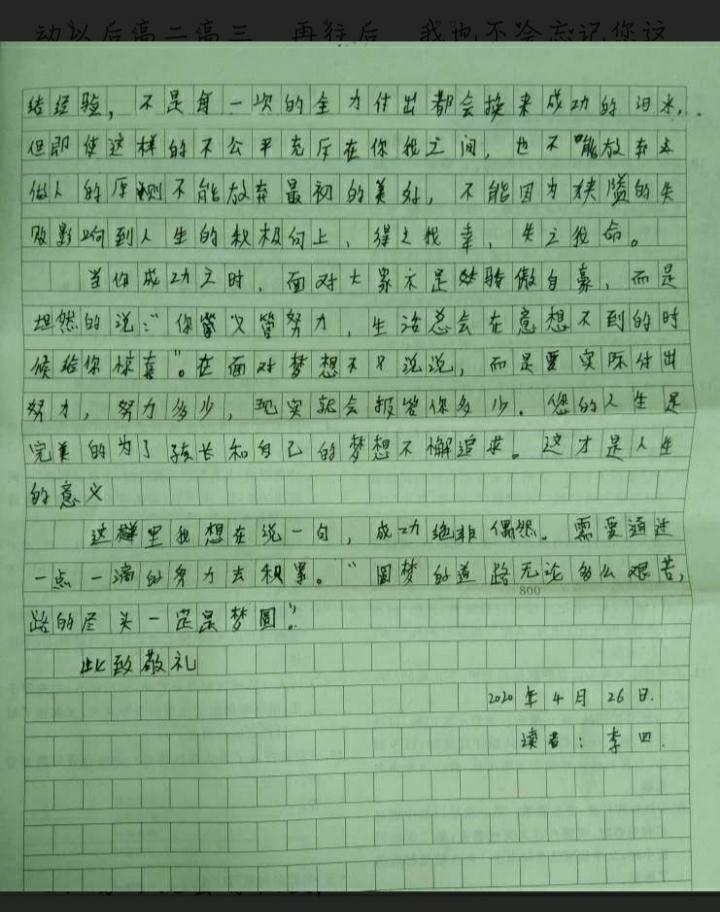 动以后高二高三 再往后 我也不会忘记你这
结经验，不是每一次的全力付出都会换来成功的泪水，
但即使这样的不公平充斥在你我之间，也不能放弃
做人的原则不能放弃最初的美好，不能因为狭隘的失
败影响到人生的积极向上，得之我幸，失之我命。
当你成功之时，面对大家不是骄傲自豪，而是
坦然的说：“你管努力，生活总会在意想不到的时
候给你惊喜”。在面对梦想不只说说，而是要实际付出
努力，努力多少，现实就会报答你多少。您的人生是
完美的为了孩长和自己的梦想不懈追求。这才是人生
的意义
这里我想在说一句，成功绝非偶然。需要通过
一点一滴的努力去积累。“圆梦的道路无论多么艰苦，
800
路的尽头一定是梦圆”。
此致敬礼
2020年4月26日.
读者：李四.